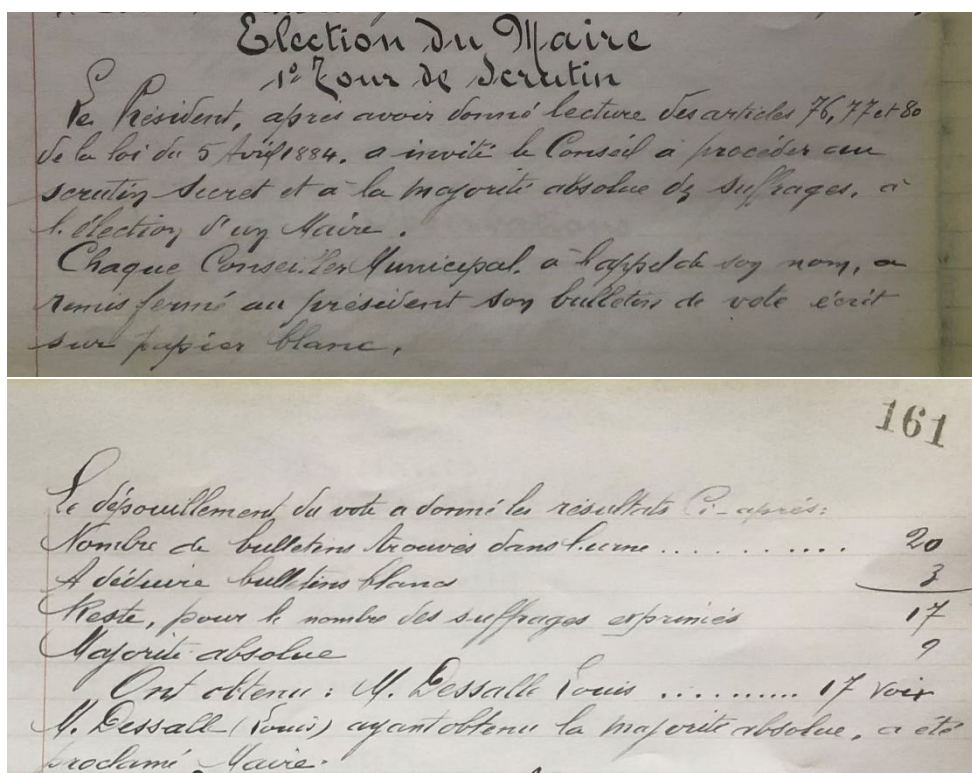 Election du Maire
1º Tour de Scrutin
Le Président, après avoir donné lecture des articles 76, 77 et 80
de la loi du 5 Avril 1884. a invité le Conseil à procéder au
scrutin secret et à la majorité absolue des suffrages, à
l'élection d'un Maire.
Chaque Conseiller Municipal. à l'appel de son nom, a
remis fermé au président son bulletin de vote écrit
sur papier blanc.
161
Le dépouillement du vote a donné les résultats Ci-après:
Nombre de bulletins trouvés dans l'urne ............ 20
A déduire bulletins blancs 3
Reste, pour le nombre des suffrages exprimés 17
Majorité absolue 9
Ont obtenu : M. Dessalle Louis .......... 17 voix
M. Dessalle (Louis) ayant obtenu la majorité absolue, a été
proclamé Maire.